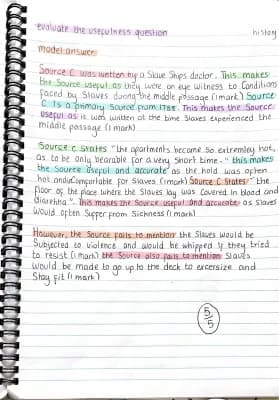 evaluate the usefulness question
history
model answer:
Source C was written by a Slave Ships doctor. This makes
the Source useful as they were an eye witness to Conditions
faced by Slaves during the middle passage (1 mark) Source
C is a primary source from 1788. This makes the Source
useful as it was written at the time Slaves experienced the
middle passage (1 mark)
Source C States "the apartments became so extremely hot,
as to be only bearable for a very short time-" this makes
the Source useful and accurate as the hold was often
hot and uncomfortable for Slaves (1 mark) Source C States "the
floor of the place where the Slaves lay was covered in blood and
diarrhea". This makes the source useful and accurate as Slaves
would often suffer from Sickness (1 mark)
However, the Source fails to mention the Slaves would be
Subjected to violence and would be whipped if they tried
to resist (1 mark) the Source also fails to mention Slaves
would be made to go up to the deck to excersize and
Stay fit (1 mark)
5/5